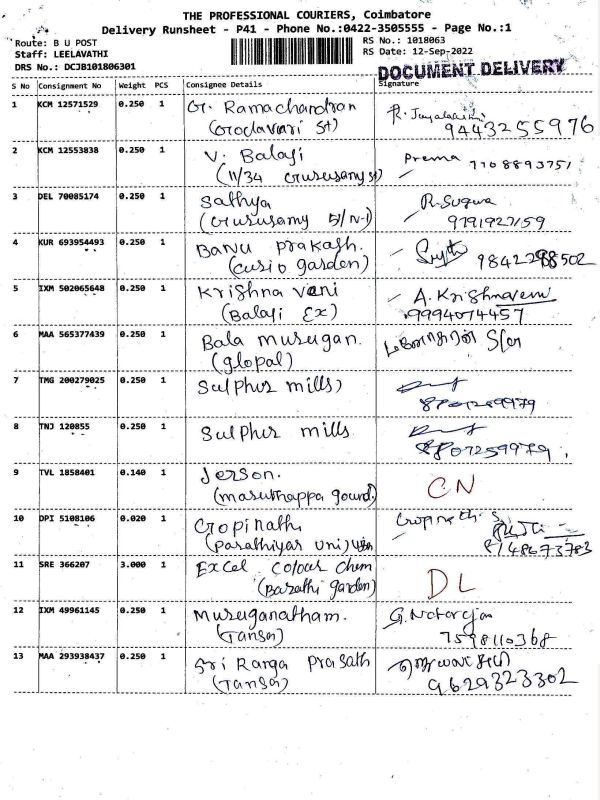 THE PROFESSIONAL COURIERS, Coimbatore
Delivery Runsheet - P41 - Phone No.:0422-3505555 - Page No.:1
Route: B U POST
Staff: LEELAVATHI
DRS No.: DCJB101806301
RS No.: 1018063
RS Date: 12-Sep-2022
DOCUMENT DELIVERY
S No Consignment No Weight PCS Consignee Details Signature
1 KCM 12571529 0.250 1 G. Ramachandran
9443255976
2 KCM 12553838 0.250 1 V. Balaji Prema
(11/34 Gurusamy st)
3 DEL 70085174 0.250 1 Sathya R. Suguna
(Gurusamy 5/N-1) 9791927159
4 KUR 693954493 0.250 1 Banu Prakash.
(Curio garden)
5 IXM 502065648 0.250 1 Krishna Veni A. Krishnaveni
(Balaji Ex) 9994074457
6 MAA 565377439 0.250 1 Bala Murugan.
(glopal)
7 TMG 200279025 0.250 1 Sulphur mills)
8 TNJ 120855 0.250 1 Sulphur mills
9 TVL 1858401 0.140 1 Jerson. CN
(masuthappa gound)
10 DPI 5108106 0.020 1 Gopinath Gopinath S
(Parathiyar uni)
8148673783
11 SRE 366207 3.000 1 Excel Colour Chem DL
(Barathi garden)
12 IXM 49961145 0.250 1 Muruganatham. G. Natarajan
(Tansa) 7598110368
13 MAA 293938437 0.250 1 Sri Ranga Prasath
(Tansa) 9629323302